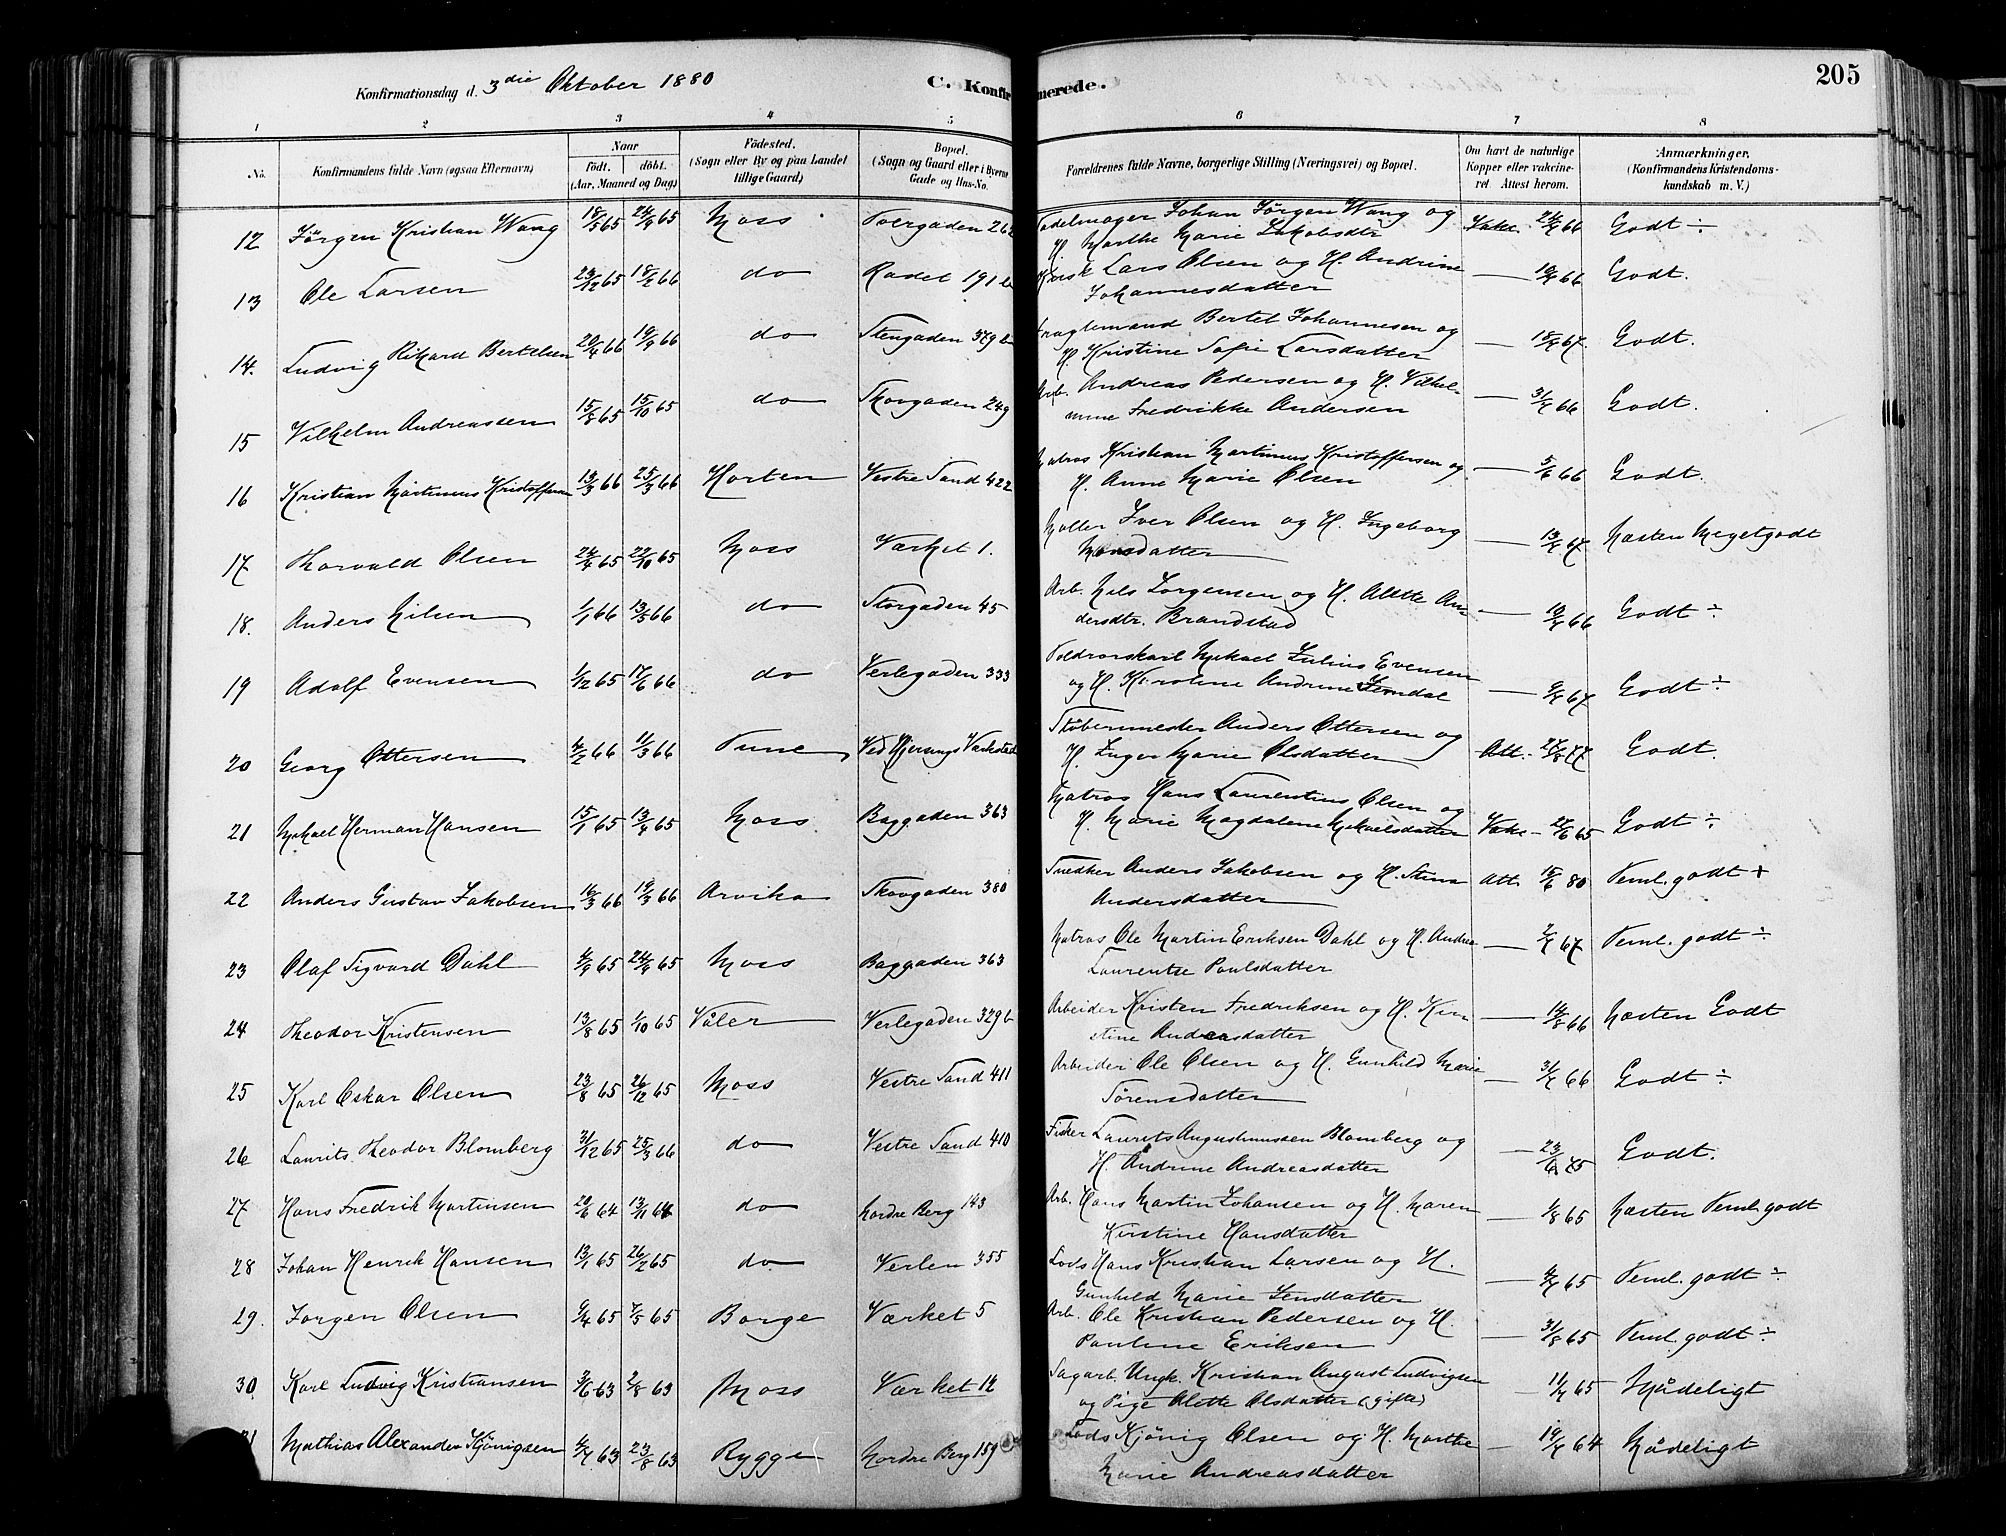 Konfirmationsdag d. 3die Oktober 1880 C. Konfirmerede. 205
1 2 3 4 5 6 7 8
No. Konfirmandens fulde Navn (ogsaa Efternavn) Naar födt. döbt. (Aar, Maaned og Dag) Födested. (Sogn eller By og paa Landet tillige Gaard) Bopæl. (Sogn og Gaard eller i Byerne Gade og Hus-No. Forældrenes fulde Navne, borgerlige Stilling (Næringsvei) og Bopæl. Om havt de naturlige Kopper eller vakcineret. Attest herom. Anmærkninger, (Konfirmandens Kristendomskundskab m. V.)
12 Jörgen Kristian Wang 18/5 65 24/9 65 Moss Torvgaden Johan Jörgen Wang og
H. Marthe Marie Jakobsdtr Vakc. 66 Godt ÷
13 Ole Larsen 23/12 65 18/2 66 do Radet 191 b Lars Olsen og H. Andrine
Johannesdatter — 66 Godt.
14. Ludvig Rikard Bertelsen 66 66 do Stengaden 379 b Bertel Johannesen og
H. Kristine Sofie Larsdatter — 67 Godt.
15 Vilhelm Andreassen 15/8 65 15/10 65 do Skovgaden 249 Arb. Andreas Pedersen og H. Vilhel-
mine Fredrikke Andersen — 66 Godt.
16 Kristian Martinius Kristoffersen 13/3 66 25/3 66 Horten Vestre Sand 422 Matros Kristian Martinius Kristoffersen og
H. Anne Marie Olsen — 66 Godt.
17 Thorvald Olsen 65 22/10 65 Moss Værket 1. Möller Iver Olsen og H. Ingeborg
Monsdatter — 67 Næsten Megetgodt
18. Anders Nilsen 1/1 66 13/5 66 do Storgaden 45 Arb. Nils Jörgensen og H. Alette An-
dersdtr. Brandstad — 66 Godt ÷
19 Adolf Evensen 1/12 65 17/6 66 do Verlegaden 333 Mikael Julius Evensen
og H. Karoline Andrine — 67 Godt ÷
20 Georg Ottersen 66 11/3 66 Tune Ved Værksted Stöbermester Anders Ottersen og
H. Inger Marie Olsdatter Att. 77 Godt.
21 Mikael Herman Hansen 15/1 65 65 Moss Baggaden 363 Matros Hans Laurentius Olsen og
H. Marie Magdalene Mikaelsdatter Vakc — 65 Godt ÷
22 Anders Gustav Jakobsen 16/3 66 19/3 66 Arvika Skovgaden 380 Snedker Anders Jakobsen og H. Stina
Andersdatter Att. 80 Teml. godt +
23 Olaf Sigvard Dahl 65 24/9 65 Moss Baggaden 363 Matros Ole Martin Eriksen Dahl og H. Andrea
Laurentse Paulsdatter — 67 Teml. godt ÷
24 Theodor Kristensen 13/8 65 1/10 65 Våler Verlegaden 329 b Arbeider Kristen Fredriksen og H. Kir-
stine Andreasdatter — 66 Næsten Godt
25 Karl Oskar Olsen 23/8 65 26/12 65 Moss Vestre Sand 411 Arbeider Ole Olsen og H. Gunhild Marie
Sörensdatter — 66 Godt ÷
26 Laurits Theodor Blomberg 31/12 65 25/3 66 do Vestre Sand 410 Fisker Laurits Augustinussen Blomberg og
H. Andrine Andreasdatter — 75 Godt.
27 Hans Fredrik Martinsen 64 13/11 64 do Nordre Berg 143 Arb. Hans Martin Johansen og H. Maren
Kirstine Hansdatter — 1/8 65 Næsten Teml. godt
28 Johan Henrik Hansen 13/1 65 26/2 65 do Verlen 355 Lods Hans Kristian Larsen og H.
Gunhild Marie Jensdatter — 65 Teml. godt ÷
29. Jörgen Olsen 65 7/5 65 Borge Værket 5 Arb. Ole Kristian Pedersen og H.
Pauline Eriksen — 31/8 65 Teml. godt ÷
30. Karl Ludvig Kristiansen 63 2/8 63 Moss Værket 12 Sagarb. Ungk. Kristian August Ludvigsen
og Pige Olette Olsdatter (gifte) — 65 Mådeligt
Mathias Alexander Kjönigsen 63 23/8 63 Rygge Nordre Berg 159 Lods Kjönig Olsen og H. Marthe
Marie Andreasdatter — 64 Mådeligt